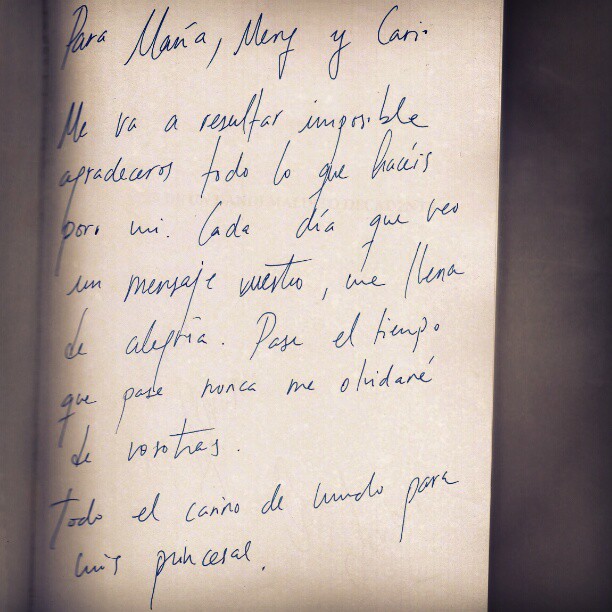 Para María, Mery y Cari:
Me va a resultar imposible
agradeceros todo lo que hacéis
por mi. Cada día que veo
un mensaje vuestro, me llena
de alegría. Pase el tiempo
que pase nunca me olvidaré
de vosotras.
Todo el cariño de mundo para
mis princesas.